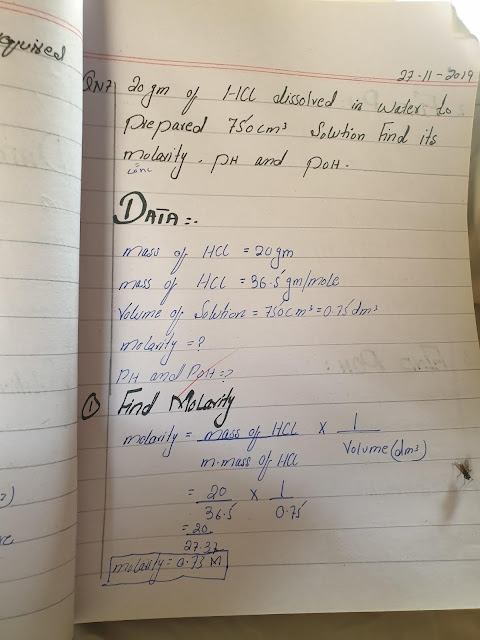 equired
27-11-2019
QN7 20gm of HCl dissolved in water to
prepared 750cm³ Solution Find its
molarity. PH and POH.
conc
DATA:-
mass of HCl = 20gm
mass of HCl = 36.5 gm/mole
Volume of Solution = 750cm³ = 0.75dm³
molarity = ?
PH and POH = ?
① Find Molarity
molarity = mass of HCl × 1
m.mass of HCl Volume (dm³)
= 20 × 1
36.5 0.75
= 20
27.37
molarity = 0.73 M